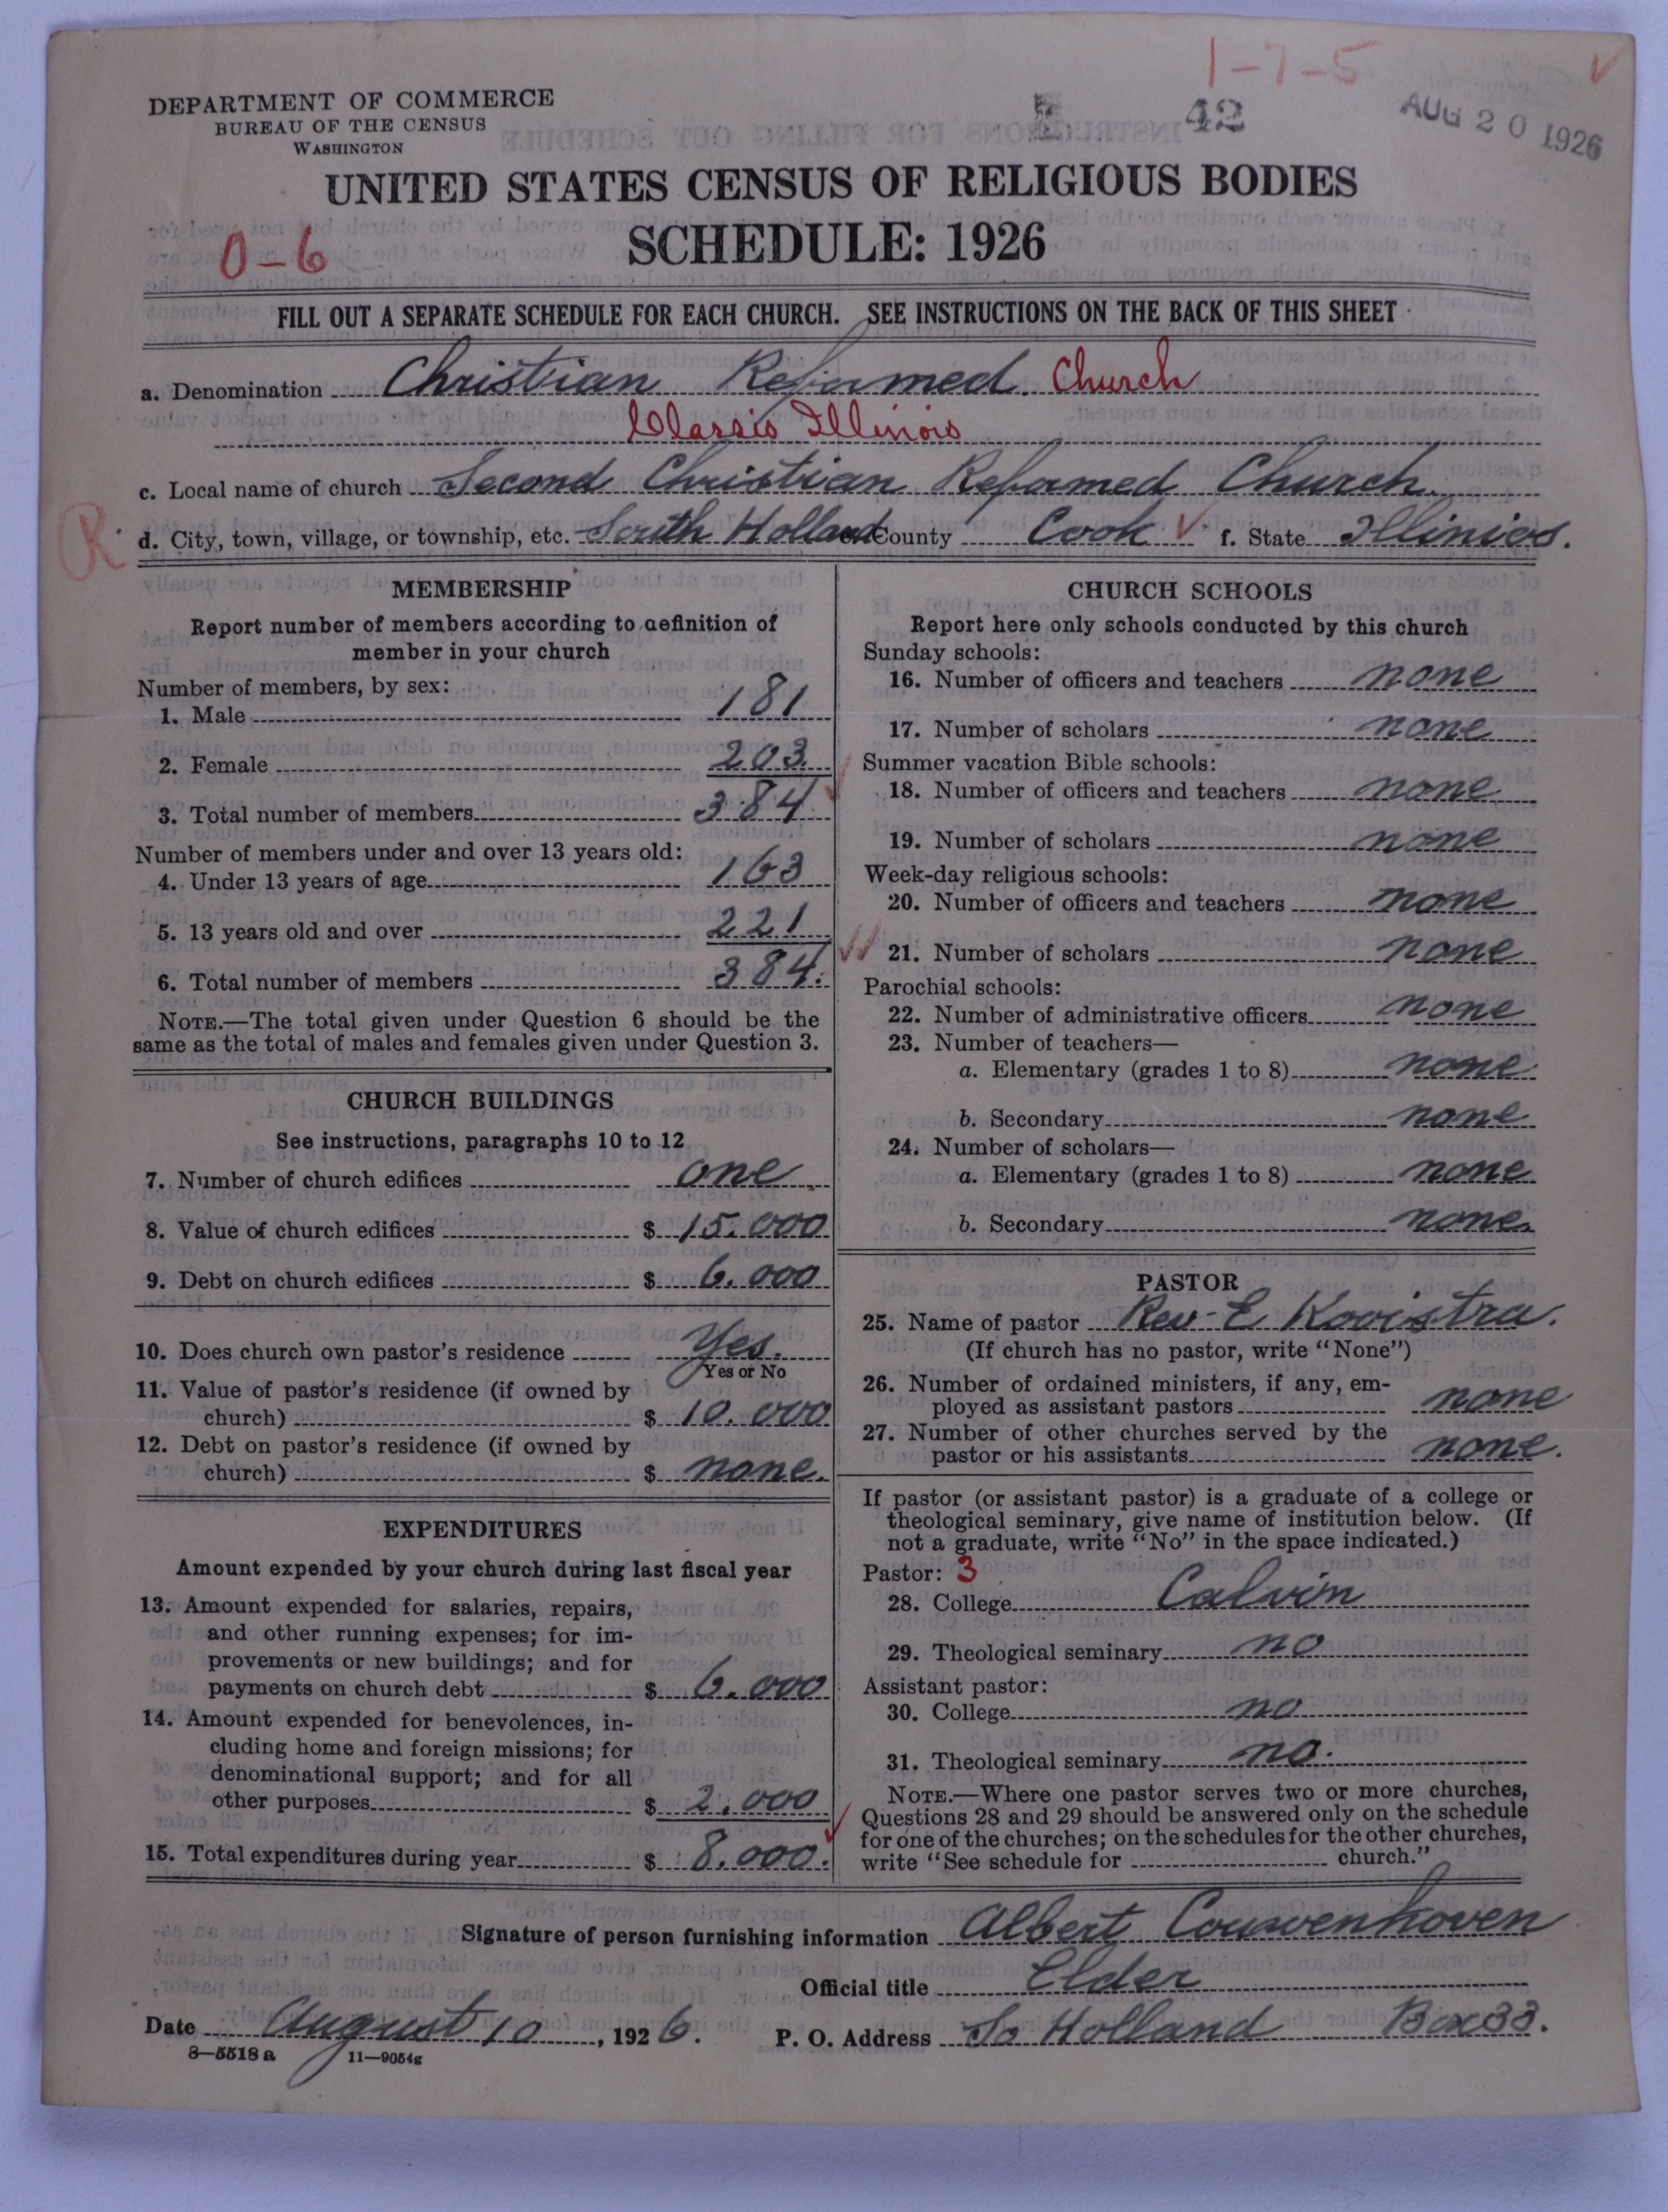 1-7-5
DEPARTMENT OF COMMERCE
BUREAU OF THE CENSUS
WASHINGTON
42
AUG 20 1926
UNITED STATES CENSUS OF RELIGIOUS BODIES
SCHEDULE: 1926
0-6
FILL OUT A SEPARATE SCHEDULE FOR EACH CHURCH. SEE INSTRUCTIONS ON THE BACK OF THIS SHEET
a. Denomination Christian Reformed. Church
Classis Illinois
c. Local name of church Second Christian Reformed Church.
R
d. City, town, village, or township, etc. South Holland County Cook f. State Illinios.
MEMBERSHIP
Report number of members according to definition of
member in your church
Number of members, by sex:
1. Male 181
2. Female 203
3. Total number of members 384
Number of members under and over 13 years old:
4. Under 13 years of age 163
5. 13 years old and over 221
6. Total number of members 384.
NOTE.—The total given under Question 6 should be the
same as the total of males and females given under Question 3.
CHURCH BUILDINGS
See instructions, paragraphs 10 to 12
7. Number of church edifices one
8. Value of church edifices $ 15.000
9. Debt on church edifices $ 6.000
10. Does church own pastor's residence Yes.
Yes or No
11. Value of pastor's residence (if owned by
church) $ 10.000
12. Debt on pastor's residence (if owned by
church) $ none.
EXPENDITURES
Amount expended by your church during last fiscal year
13. Amount expended for salaries, repairs,
and other running expenses; for im-
provements or new buildings; and for
payments on church debt $ 6.000
14. Amount expended for benevolences, in-
cluding home and foreign missions; for
denominational support; and for all
other purposes $ 2.000
15. Total expenditures during year $ 8.000.
CHURCH SCHOOLS
Report here only schools conducted by this church
Sunday schools:
16. Number of officers and teachers none
17. Number of scholars none
Summer vacation Bible schools:
18. Number of officers and teachers none
19. Number of scholars none
Week-day religious schools:
20. Number of officers and teachers none
21. Number of scholars none
Parochial schools:
22. Number of administrative officers none
23. Number of teachers—
a. Elementary (grades 1 to 8) none
b. Secondary none
24. Number of scholars—
a. Elementary (grades 1 to 8) none
b. Secondary none.
PASTOR
25. Name of pastor Rev E Kooistra.
(If church has no pastor, write "None")
26. Number of ordained ministers, if any, em-
ployed as assistant pastors none
27. Number of other churches served by the
pastor or his assistants none.
If pastor (or assistant pastor) is a graduate of a college or
theological seminary, give name of institution below. (If
not a graduate, write "No" in the space indicated.)
Pastor: 3
28. College Calvin
29. Theological seminary no
Assistant pastor:
30. College no
31. Theological seminary no.
NOTE.—Where one pastor serves two or more churches,
Questions 28 and 29 should be answered only on the schedule
for one of the churches; on the schedules for the other churches,
write "See schedule for church."
Signature of person furnishing information Albert Couwenhoven
Official title Elder
Date August 10, 1926. P. O. Address So Holland Box 33.
8—5518 a 11—9054g